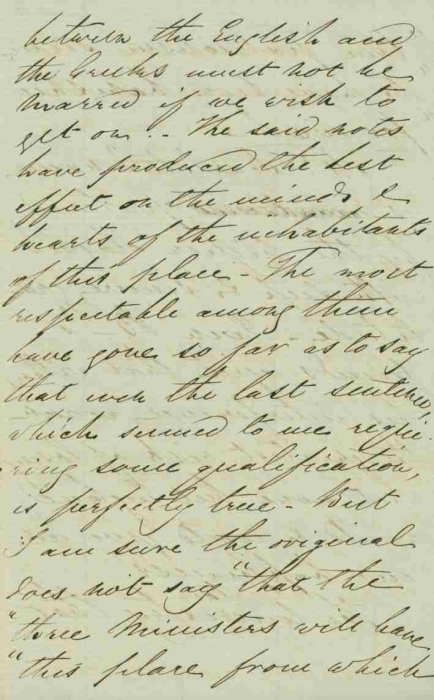 between the English and
the Greeks must not be
marred if we wish to
get on .. The said notes
have produced the best
effect on the minds &
hearts of the inhabitants
of this place - The most
respectable among them
have gone so far as to say
that even the last sentence,
which seemed to me requi-
ring some qualification,
is perfectly true - But
I am sure the original
does not say "that the
"three Ministers will have
"this place from which